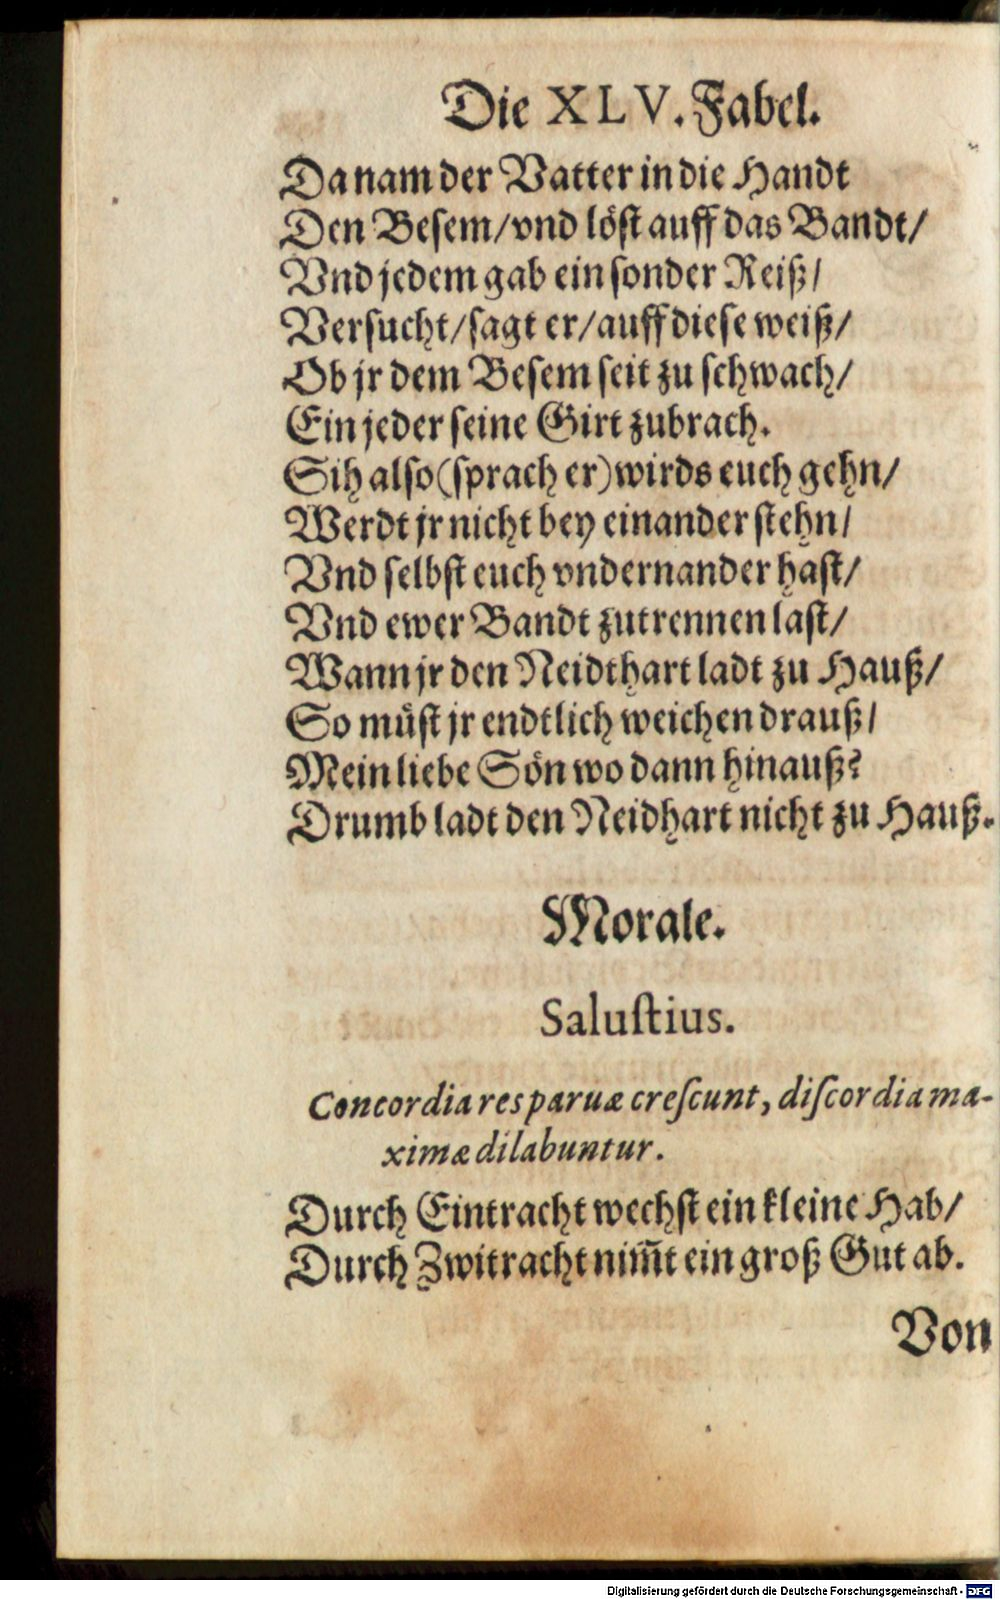 Die XLV. Fabel.
Da nam der Vatter in die Handt
Den Besem/ vnd löst auff das Bandt/
Vnd jedem gab ein sonder Reiß/
Versucht/ sagt er/ auff diese weiß/
Ob jr dem Besem seit zu schwach/
Ein jeder seine Girt zubrach.
Sih also (sprach er) wirds euch gehn/
Werdt jr nicht bey einander stehn/
Vnd selbst euch vndernander hast/
Vnd ewer Bandt zutrennen last/
Wann jr den Neidthart ladt zu Hauß/
So müst jr endtlich weichen drauß/
Mein liebe Sön wo dann hinauß?
Drumb ladt den Neidhart nicht zu Hauß.
Morale.
Saluſtius.
Concordia res paruæ creſcunt, diſcordia ma-
ximæ dilabuntur.
Durch Eintracht wechst ein kleine Hab/
Durch Zwitracht nim̄t ein groß Gut ab.
Von
Digitalisierung gefördert durch die Deutsche Forschungsgemeinschaft - DFG